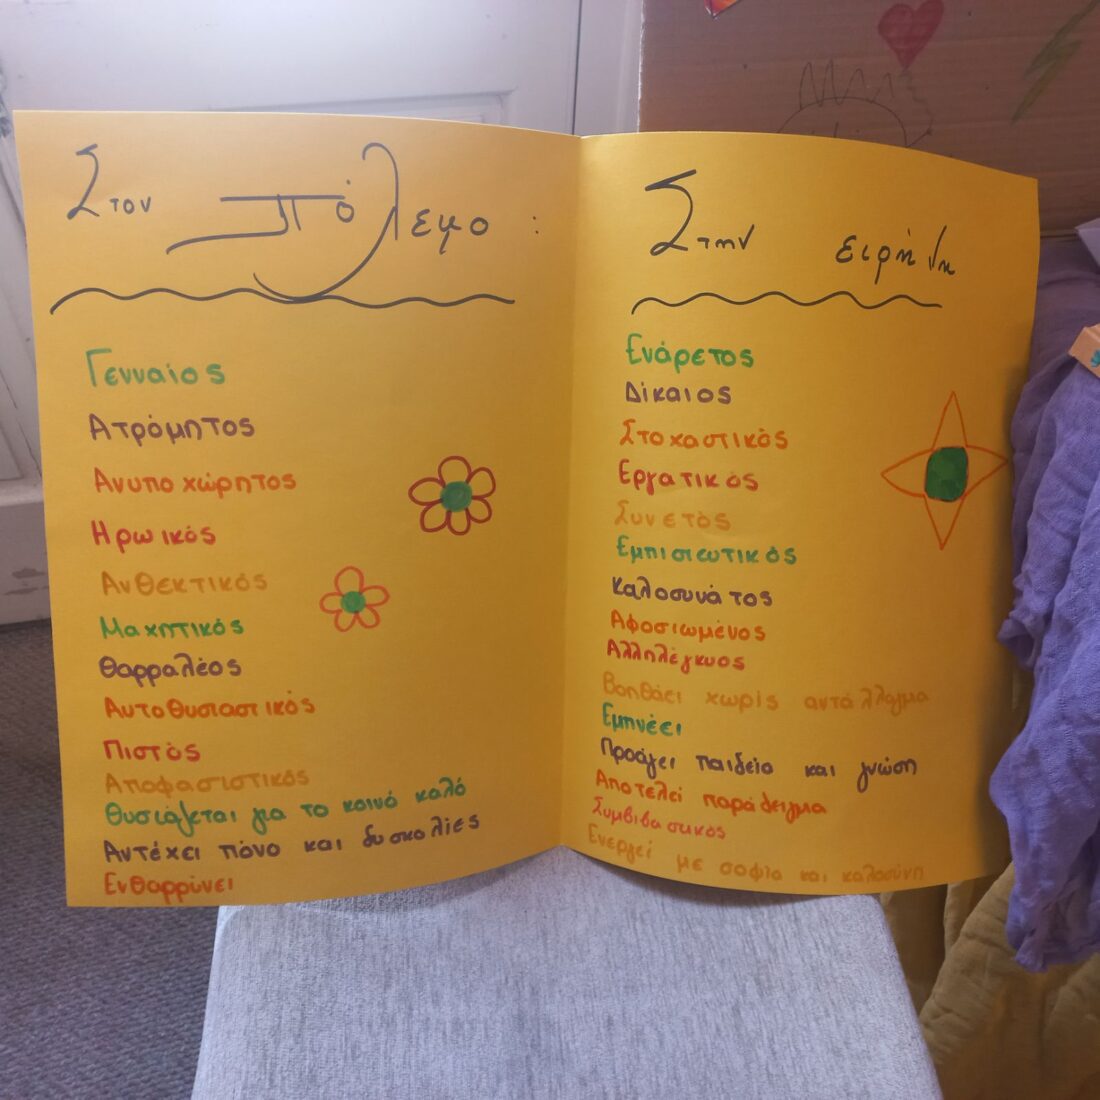 Στον πόλεμο :
Γενναίος
Ατρόμητος
Ανυποχώρητος
Ηρωικός
Ανθεκτικός
Μαχητικός
Θαρραλέος
Αυτοθυσιαστικός
Πιστός
Αποφασιστικός
Θυσιάζεται για το κοινό καλό
Αντέχει πόνο και δυσκολίες
Ενθαρρύνει
Στην ειρήνη
Ενάρετος
Δίκαιος
Στοχαστικός
Εργατικός
Συνετός
Εμπιστευτικός
Καλοσυνάτος
Αφοσιωμένος
Αλληλέγκυος
Βοηθάει χωρίς αντάλλαγμα
Εμπνέει
Προάγει παιδεία και γνώση
Αποτελεί παράδειγμα
Συμβιβαστικός
Ενεργεί με σοφία και καλοσύνη